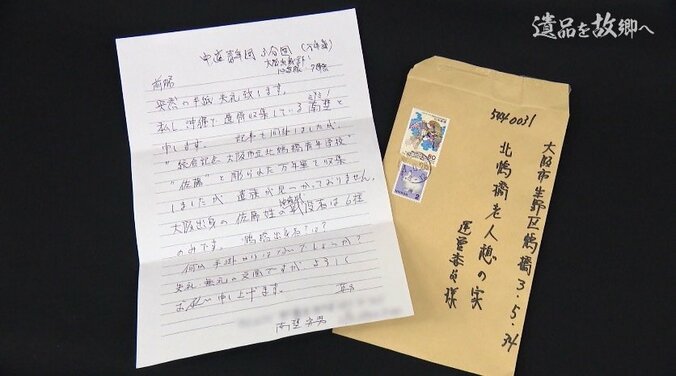 遺品を故郷へ
前略
突然の手紙 失礼致します。
私し、沖縄で遺骨収集している南埜と
申します。 記事も同封しましたが、
"統合記念 大阪市立北鶴橋青年学校"
"佐藤"と彫られた万年筆を収集
しましたが 遺族が見つかっておりません。
大阪出身の佐藤姓の戦没者は6柱
のみです。 鶴橋出身者?は?
何か手掛かりはないでしょうか?
失礼、無礼の文面ですが よろしく
お願い申し上げます。 草々
南埜 安男
544 0031
大阪市生野区鶴橋3.5.34
北鶴橋老人憩の家
運営委員様
80
2